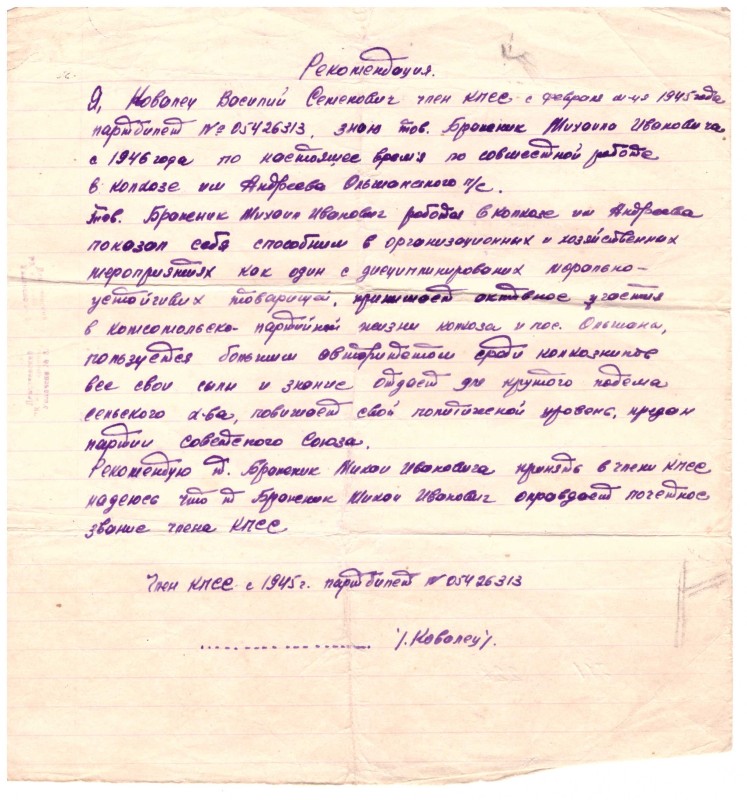 Рекомендация.
Я, Ковалец Василий Семенович член КПСС с февраля м-ця 1945 года
партбилет № 05426313, знаю тов. Браженик Михаила Ивановича
с 1946 года по настоящее время по совместной работе
в колхозе им Андреева Ольшанского п/с.
тов. Браженик Михаил Иванович работая в колхозе им Андреева
показал себя способним в организационных и хозяйственных
мероприятиях как один с дисциплинированих морально-
устойчивих товарищей, принимает активное участия
в комсомольско-партийной жизни колхоза и пос. Ольшана,
пользуется большим авторитетом среди колхозников
все свои силы и знание отдает для крутого подема
сельского х-ва, повишает свой политический уровень, предан
партии Советского Союза.
Рекомендую т. Браженик Михаи Ивановича принять в члены КПСС
надеюсь что т Браженик Михаи Иванович оправдает почетное
звание члена КПСС
Член КПСС с 1945 г. партбилет № 05426313
/.Ковалец/.